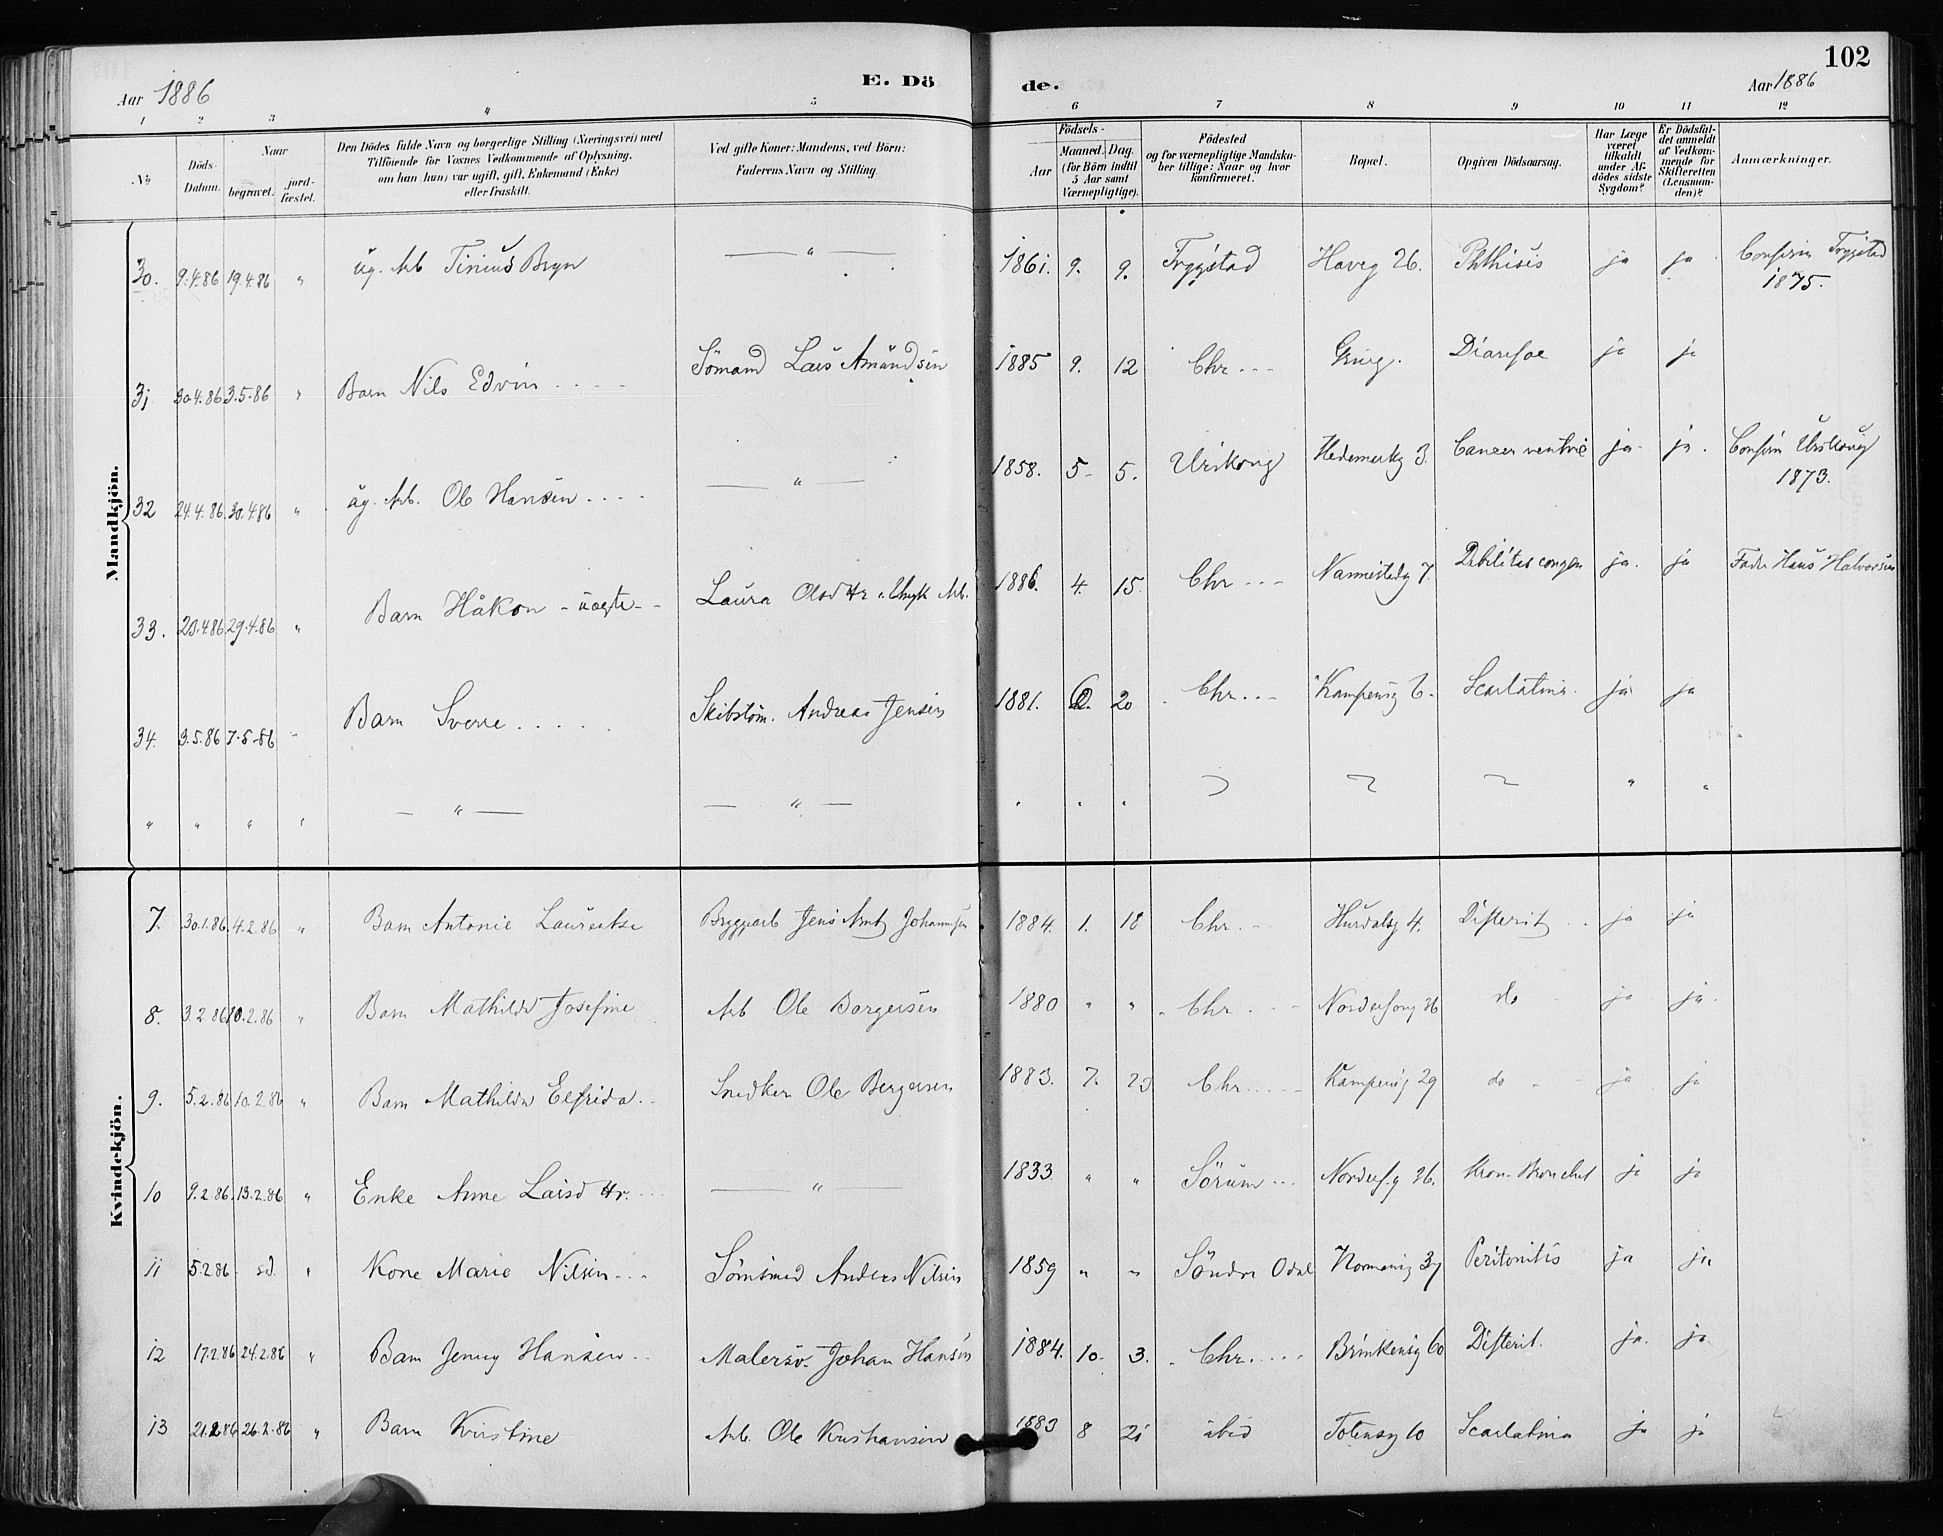 102
Aar 1886 E. Dö de. Aar 1886
1 2 3 4 5 6 7 8 9 10 11 12
No
Döds-Datum.
Naar
begravet.
jord-fæstet.
Den Dödes fulde Navn og borgerlige Stilling (Næringsvei) med
Tilföiende for Voxnes Vedkommende af Oplysning,
om han (hun) var ugift, gift, Enkemand (Enke)
eller fraskilt.
Ved gifte Koner: Mandens, ved Börn:
Faderens Navn og Stilling.
Födsels-
Aar
Maaned. Dag.
(for Börn indtil
5 Aar samt
Værnepligtige).
Födested
og for værnepligtige Mandsku-
ber tillige: Naar og hvor
konfirmeret.
Bopæl.
Opgiven Dödsaarsag.
Har Læge
været
tilkaldt
under Af-
dödes sidste
Sygdom?
Er Dödsfal-
det anmeldt
af Vedkom-
mende for
Skifteretten
(Lensman-
den)?
Anmærkninger.
Mandkjön.
30. 9.4.86 19.4.86 " ug. Arb Tinius Bryn — " — 1861. 9. 9. Trygstad Haveg 26. Phthisis ja ja Confirm Trygstad
1875.
31 30.4.86 3.5.86 " Barn Nils Edvin .... Sömand Lars Amundsen 1885 9. 12 Chr... Diarrhoe ja ja
32 24.4.86 30.4.86 " ug. Arb. Ole Hansen .... — " — 1858. 5. 5. Urskoug Hedemarkg 3. Cancer ventric ja ja. Confirm Urskoug
1873.
33. 23.4.86 29.4.86 " Barn Håkon - uægte - Laura Olsdtr Arb. 1886. 4. 15. Chr... Nannestadg 7. Debilitas congen ja. ja Fader Hans Halvorsen
34. 3.5.86 7.5.86 " Barn Sverre ..... Skibstöm. Andreas Jensen 1881. 20 Chr... Kampensg 6. Scarlatina. ja ja
" " " " — " — — " — " " " " "
Kvindekjön.
7. 30.1.86. 4.2.86 " Barn Antonie Lauritse Bryggearb Jens Arnt Johannsen 1884. 1. 18 Chr. Hurdalsg 4. Difterit .. ja ja
8. 3.2.86 10.2.86 " Barn Mathilde Josefine Arb Ole Borgersen 1880 " " Chr. . Norderhovg 26 do ja ja.
9. 5.2.86 10.2.86 " Barn Mathilde Elfrida .. Snedker Ole Bergersen 1883. 7. 23 Chr.... Kampensg 29 do - ja ja
10 9.2.86. 13.2.86 " Enke Anne Larsdtr. ... — " — 1833. " " Sörum ... Norderh.g 26. Kron. Bronchit ja ja
11 5.2.86 sd. " Kone Marie Nilsen ... Tömmermd Anders Nilsen 1859 " " Söndre Odal Normansg 37 Peritonitis ja ja
12 17.2.86 24.2.86 " Barn Jenny Hansen .. Malersv. Johan Hansen 1884. 10. 3. Chr..... Brinkensg 60 Difterit. ja. ja
13 21.2.86 26.2.86 " Barn Kristine Arb. Ole Kristiansen 1883 8 21 ibid Totensg 10 Scarlatina ja ja